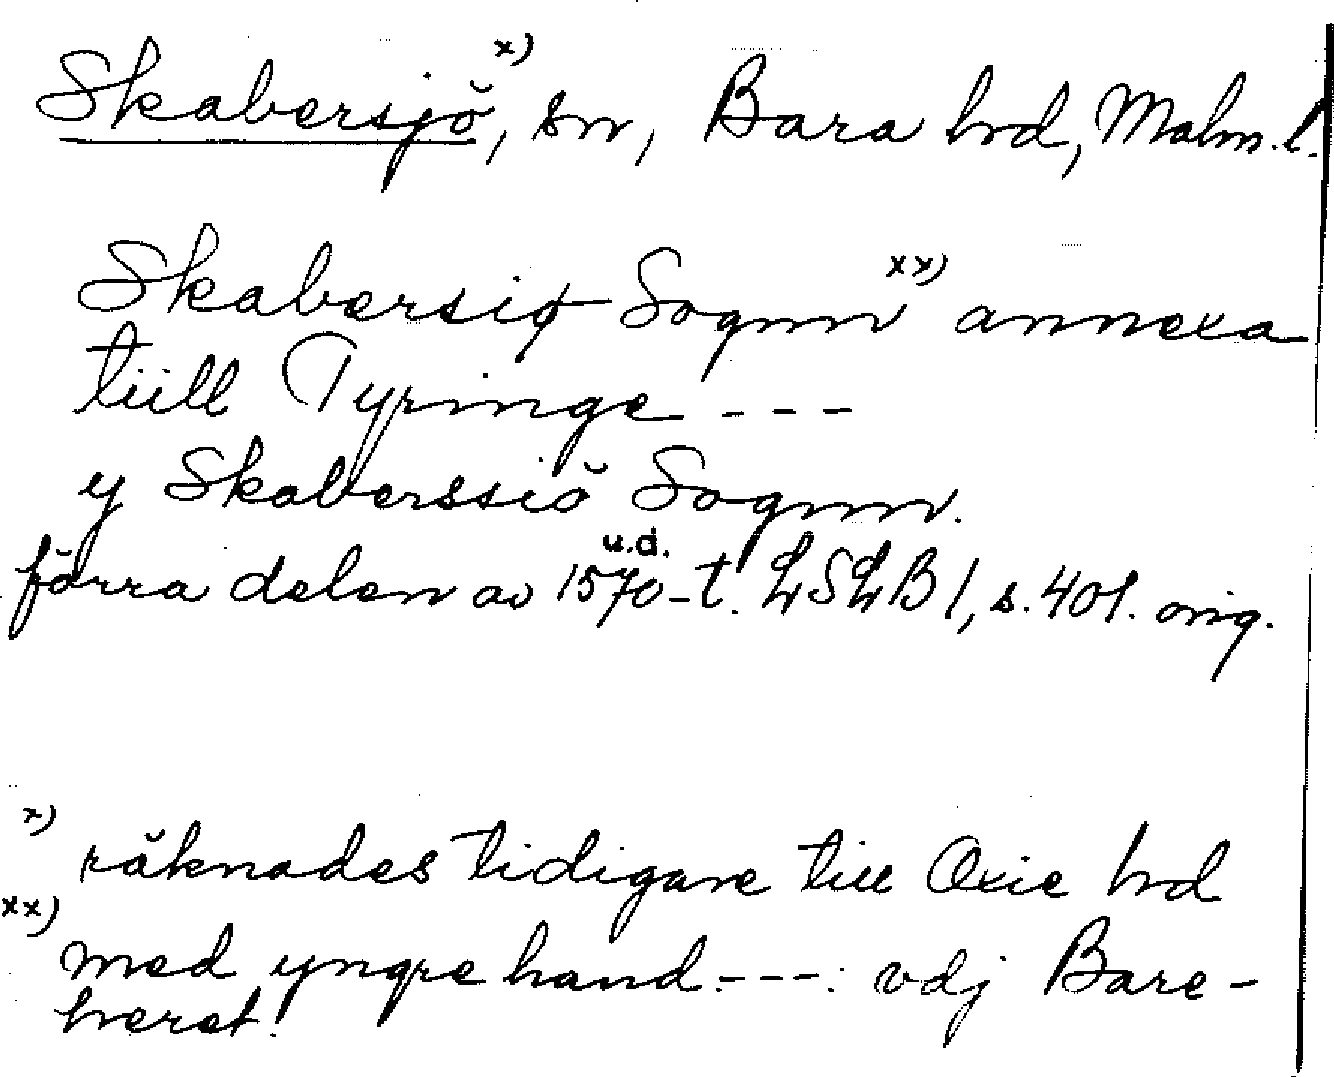 Skabersjö, ˣ⁾ sn, Bara hrd, Malm. l.
Skabersiø Sognn ˣˣ⁾ annexa
tiill Tyringe - - -
y Skaberssiö Sognn.
förra delen av 1570-t. u.d. LSLB 1, s. 401. orig.
x) räknades tidigare till Oxie hrd
xx) med yngre hand - - - : vdj Bare-
heret.